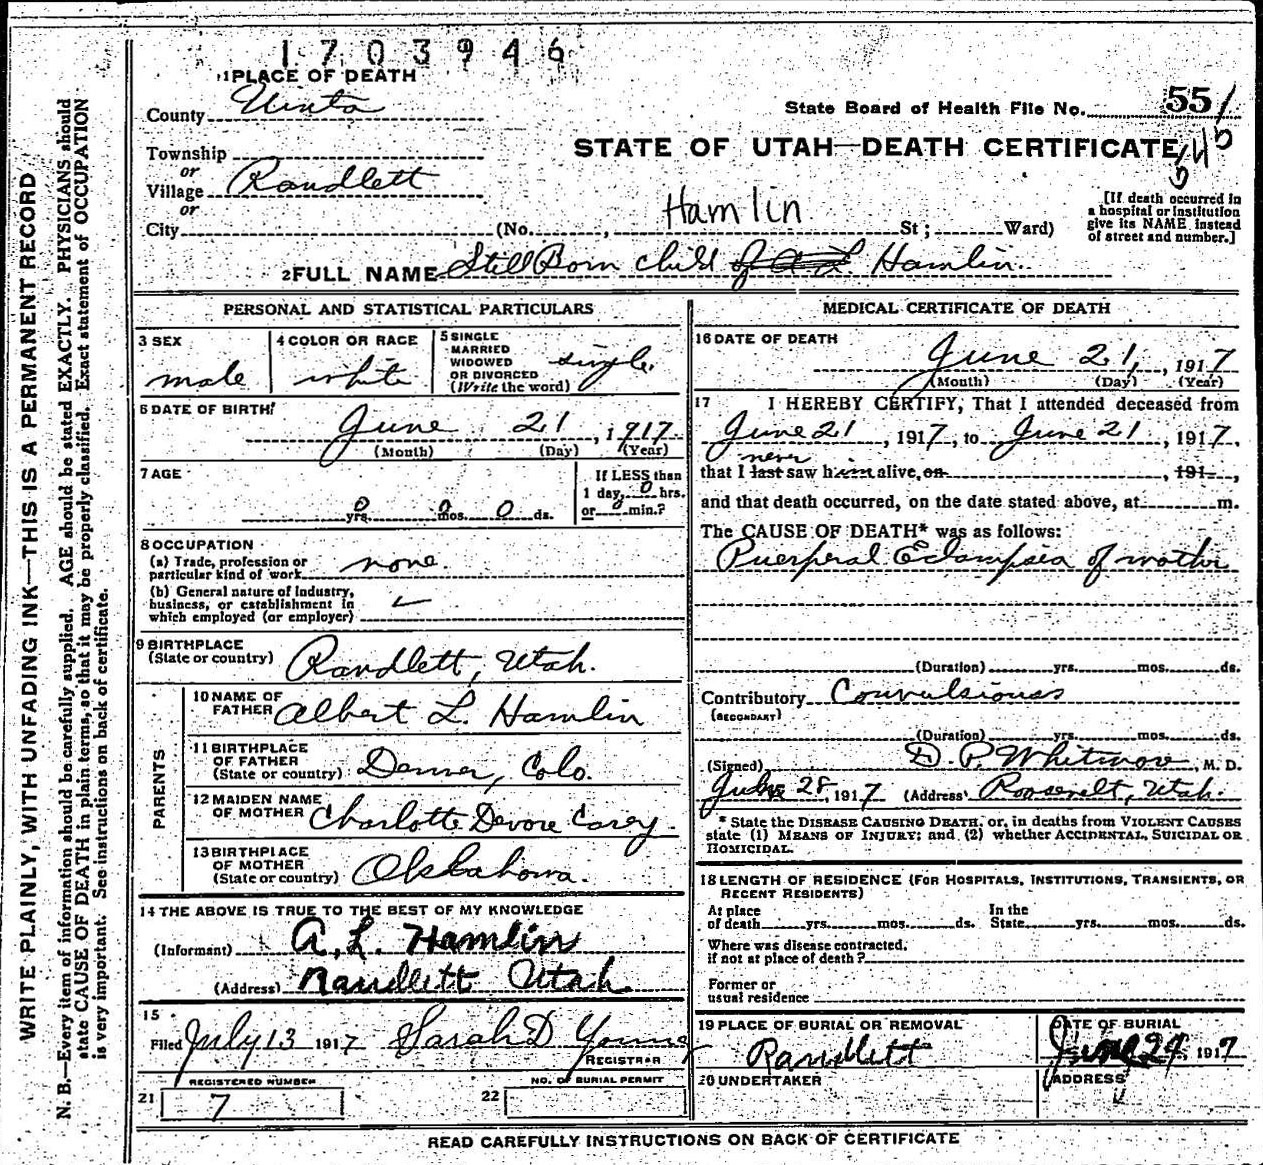 1703946
1 PLACE OF DEATH
County Uinta
State Board of Health File No. 551
STATE OF UTAH—DEATH CERTIFICATE
Township
or
Village Randlett
or
City (No. , Hamlin St; Ward)
[If death occurred in
a hospital or institution
give its NAME instead
of street and number.]
2 FULL NAME Still Born child of A L Hamlin.
PERSONAL AND STATISTICAL PARTICULARS
3 SEX
male
4 COLOR OR RACE
white
5 SINGLE
MARRIED
WIDOWED
OR DIVORCED
(Write the word)
single.
6 DATE OF BIRTH
June 21, 1917
(Month) (Day) (Year)
7 AGE
0 yrs. 0 mos. 0 ds.
If LESS than
1 day, 0 hrs.
or 0 min.?
8 OCCUPATION
(a) Trade, profession or
particular kind of work none.
(b) General nature of Industry,
business, or establishment in
which employed (or employer)
9 BIRTHPLACE
(State or country) Randlett, Utah.
PARENTS
10 NAME OF
FATHER Albert L. Hamlin
11 BIRTHPLACE
OF FATHER
(State or country) Denver, Colo.
12 MAIDEN NAME
OF MOTHER Charlotte Devore Carey.
13 BIRTHPLACE
OF MOTHER
(State or country) Oklahoma.
14 THE ABOVE IS TRUE TO THE BEST OF MY KNOWLEDGE
(Informant) A. L. Hamlin
(Address) Randlett Utah.
15
Filed July 13 1917 Sarah D Young
REGISTRAR
REGISTERED NUMBER
21 7
NO. OF BURIAL PERMIT
22
MEDICAL CERTIFICATE OF DEATH
16 DATE OF DEATH
June 21, 1917
(Month) (Day) (Year)
17 I HEREBY CERTIFY, That I attended deceased from
June 21, 1917, to June 21, 1917,
never
that I last saw him alive, on , 191 ,
and that death occurred, on the date stated above, at m.
The CAUSE OF DEATH* was as follows:
Puerperal Eclampsia of mother
(Duration) yrs. mos. ds.
Contributory Convulsions
(SECONDARY)
(Duration) yrs. mos. ds.
(Signed) D. P. Whitmore, M. D.
28, 1917 (Address) Roosevelt, Utah.
* State the DISEASE CAUSING DEATH, or, in deaths from VIOLENT CAUSES
state (1) MEANS OF INJURY; and (2) whether ACCIDENTAL, SUICIDAL OR
HOMICIDAL.
18 LENGTH OF RESIDENCE (FOR HOSPITALS, INSTITUTIONS, TRANSIENTS, OR
RECENT RESIDENTS)
At place
of death yrs. mos. ds.
In the
State yrs. mos. ds.
Where was disease contracted,
if not at place of death?
Former or
usual residence
19 PLACE OF BURIAL OR REMOVAL
Randlett
DATE OF BURIAL
June 24, 1917
20 UNDERTAKER
ADDRESS
READ CAREFULLY INSTRUCTIONS ON BACK OF CERTIFICATE
WRITE PLAINLY, WITH UNFADING INK—THIS IS A PERMANENT RECORD
N. B.—Every item of information should be carefully supplied. AGE should be stated EXACTLY. PHYSICIANS should
state CAUSE OF DEATH in plain terms, so that it may be properly classified. Exact statement of OCCUPATION
is very important. See instructions on back of certificate.